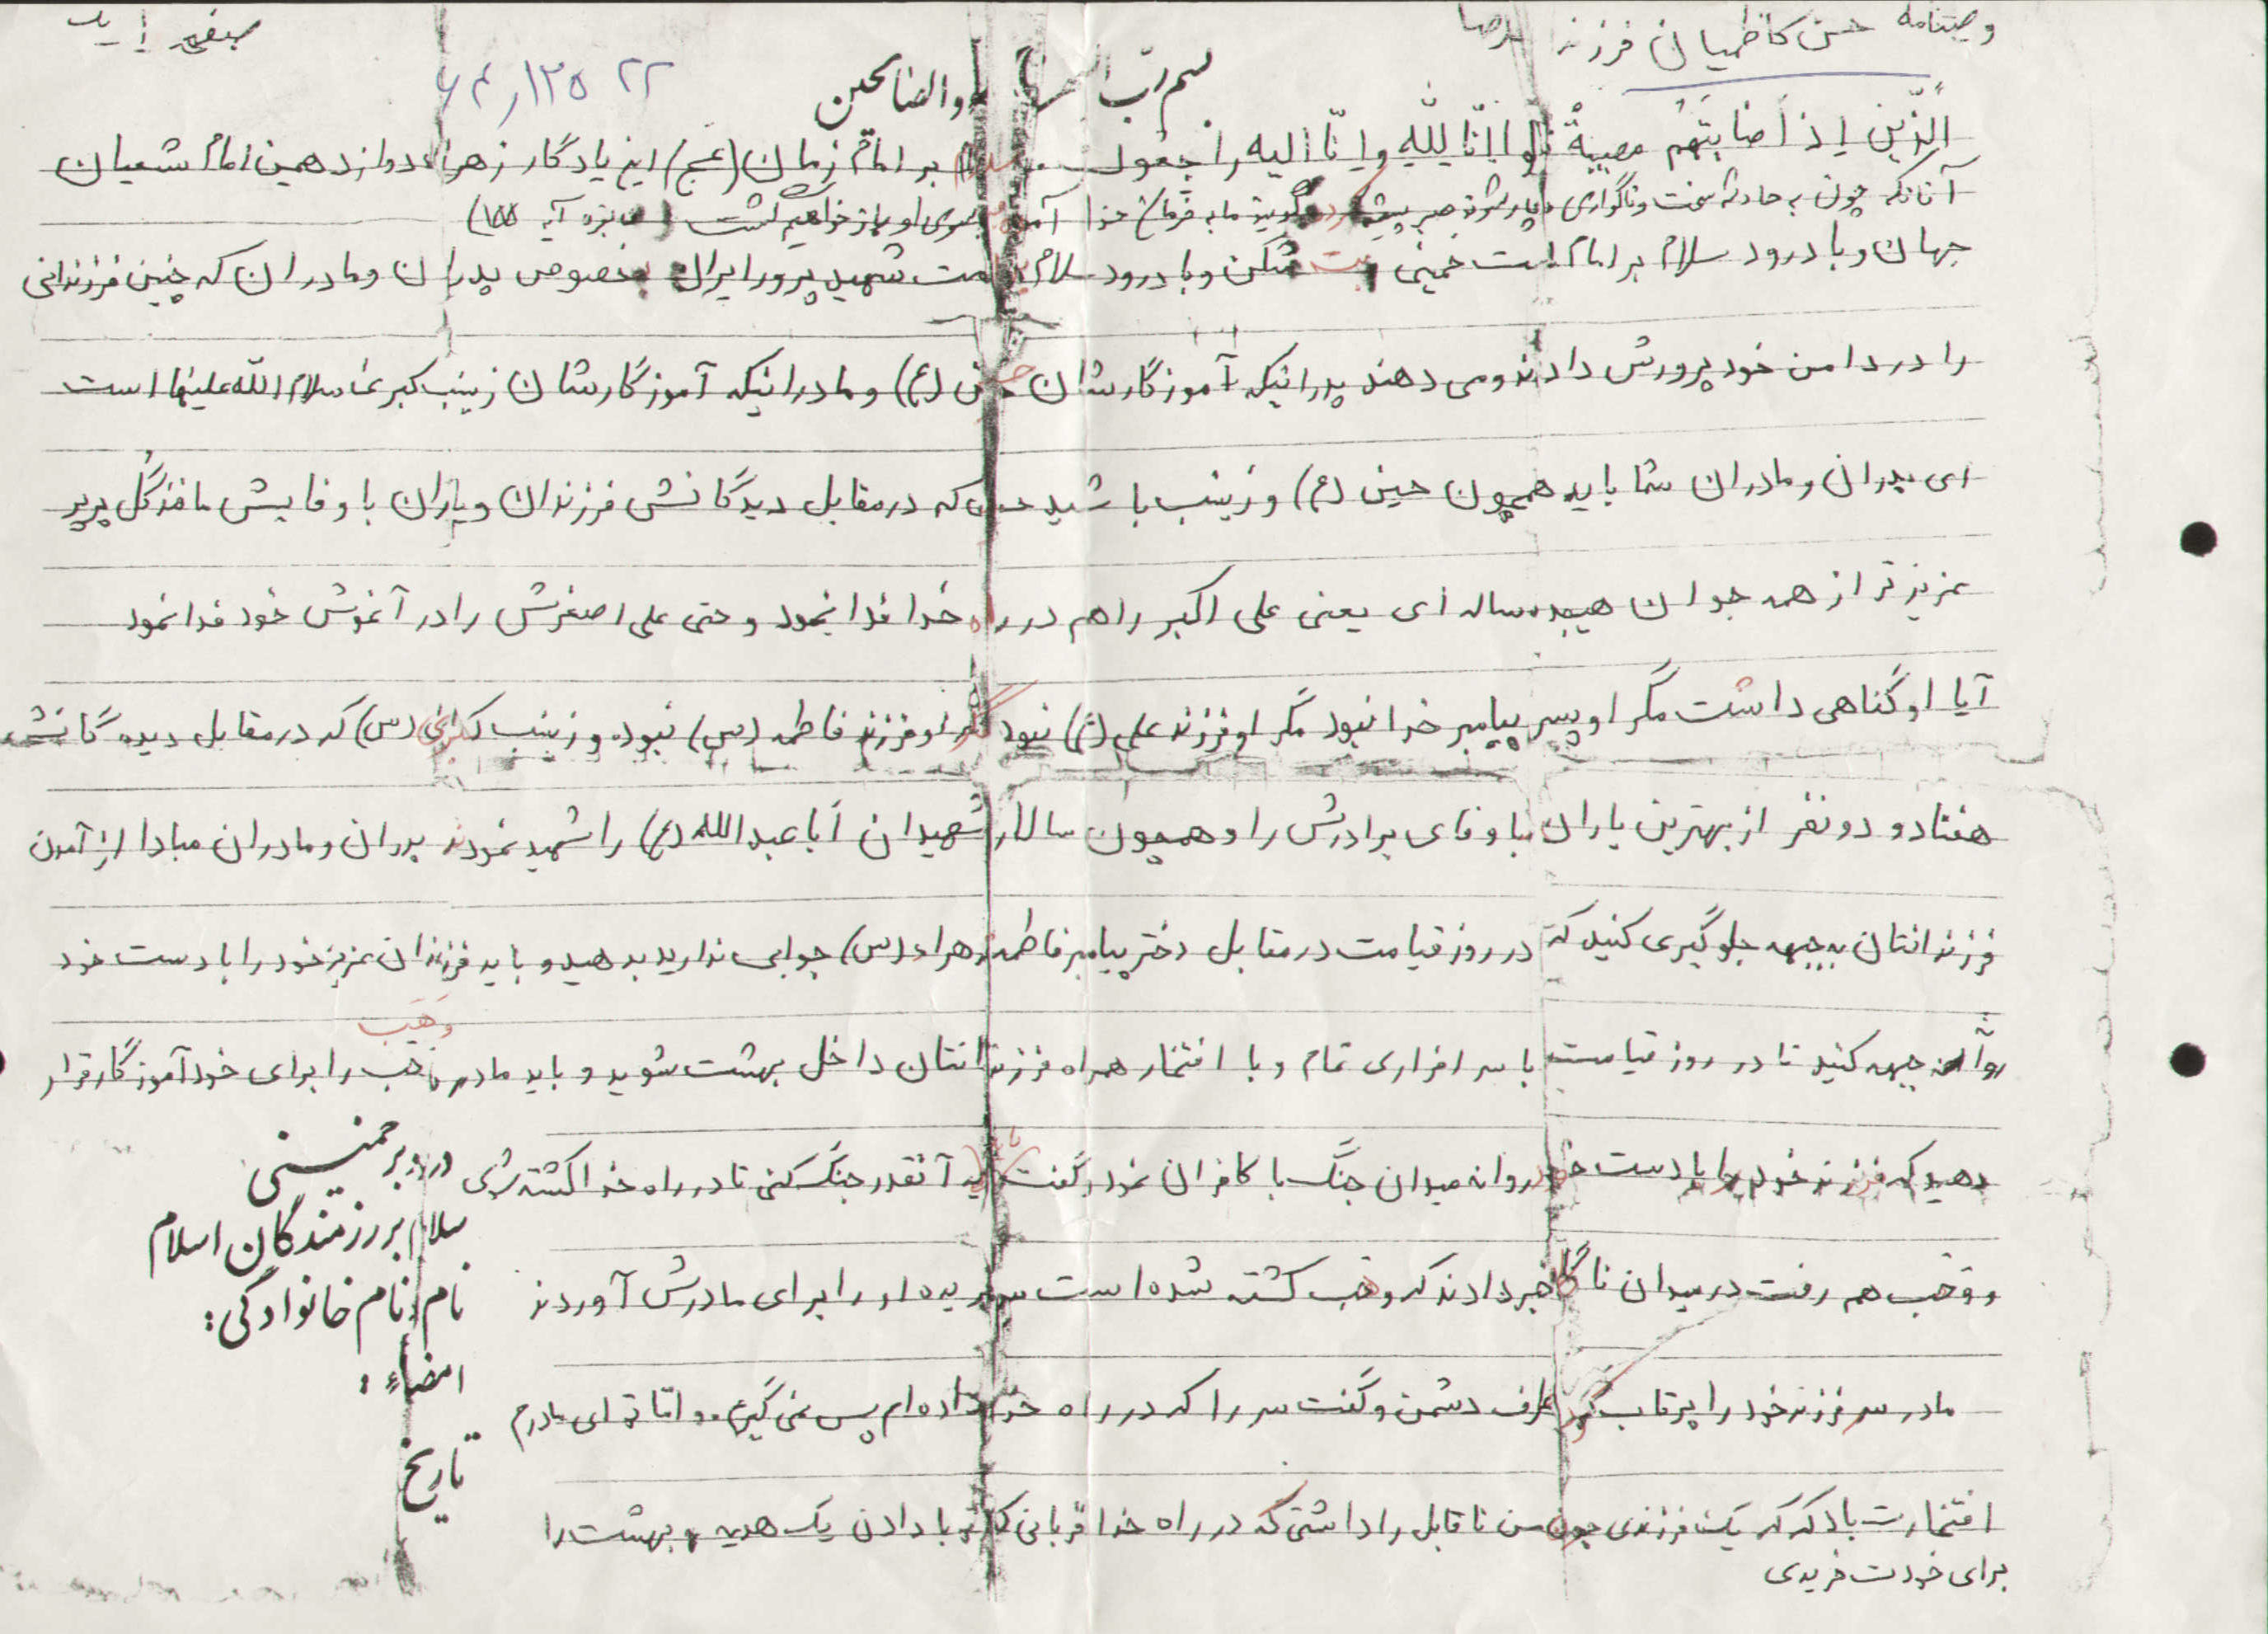 وصیتنامه حسن کاظمیان فرزند رضا
صفحه یک
۲۲ ۱۲۵ر۶۲
بسم رب الشهدا والصالحین
الذّین اِذ اَصابَتَهُم مصیبةٌ قالوا انّا لِلّهِ و انّا الیه راجعون سلام بر امام زمان (عج) این یادگار زهراء دوازدهمین امام شیعیان
آنانکه چون به حادثه سخت و ناگواری دچار شوند صبر پیشه کرده گویند ما به فرمان خدا آمده بسوی او باز خواهیم گشت ( بقره آیه ۱۵۵)
جهان و با درود سلام بر امام امت خمینی بت شکن و با درود سلام بر امت شهید پرور ایران بخصوص پدران و مادران که چنین فرزندانی
را در دامن خود پرورش دادند و می دهند پدرانیکه آموزگارشان حسین (ع) و مادرانیکه آموزگارشان زینب کبری سلام اللّه علیها است
ای پدران و مادران شما باید همچون حسین (ع) و زینب باشید که در مقابل دیدگانش فرزندان و یاران با وفایش مانند گُل پرپر
عزیزتر از همه جوان هیجده ساله ای یعنی علی اکبر را هم در راه خدا فدا نمود و حتی علی اصغرش را در آغوش خود فدا نمود
آیا او گناهی داشت مگر او پسر پیامبر خدا نبود مگر او فرزند علی (ع) نبود مگر او فرزند فاطمه (س) نبود و زینب کبرای (س) که در مقابل دیده گانش
هفتاد و دو نفر از بهترین یاران با وفای برادرش را و همچون سالار شهیدان اَبا عبدالله (ع) را شهید نمودند پدران و مادران مبادا از آمدن
فرزندانتان به جبهه جلوگیری کنید که در روز قیامت در مقابل دختر پیامبر فاطمه زهراء (س) جوابی ندارید بدهید و باید فرزندان عزیز خود را با دست خود
روآنه جبهه کنید تا در روز قیامت با سرافرازی تمام و با افتخار همراه فرزندانتان داخل بهشت شوید و باید مادر وَهَب را برای خود آموزگار قرار
دهید که فرزند خود را با دست خود روانه میدان جنگ با کافران نمود و گفت باید آنقدر جنگ کنی تا در راه خدا کشته شوی
و وَهَب هم رفت در میدان ناگاه خبر دادند که وهب کشته شده است سر بریده او را برای مادرش آوردند
مادر سر فرزند خود را پرتاب کرد طرف دشمن و گفت سر را که در راه خدا داده ام پس نمی گیرم. و امّا تو ای مادرم
افتخارت باد که که یک فرزندی چون من ناقابل را داشتی که در راه خدا قربانی کردی با دادن یک هدیه بهشت را
برای خودت خریدی
درود بر خمینی
سلام بر رزمندگان اسلام
نام و نام خانوادگی :
امضاء :
تاریخ